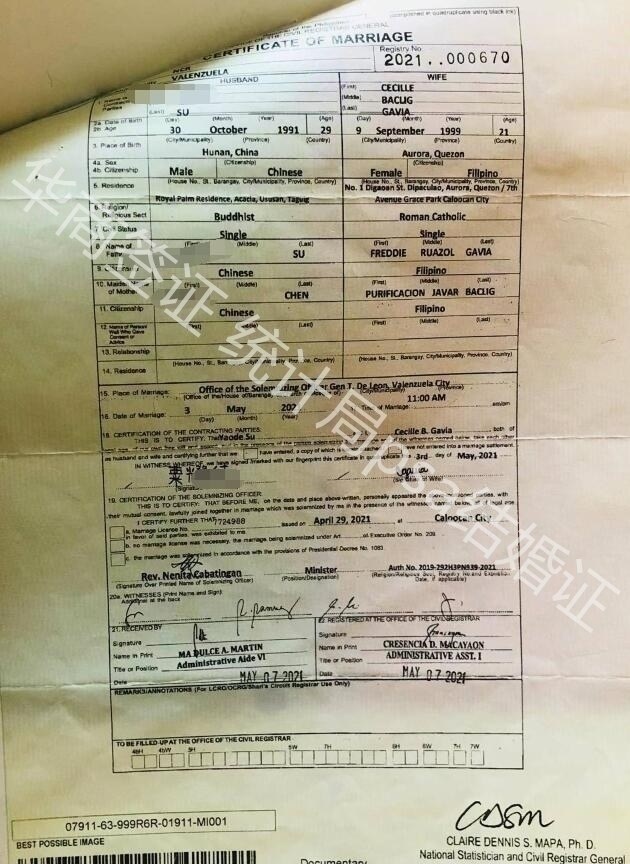 (accomplished in quadruplicate using black ink)
OFFICE OF THE CIVIL REGISTRAR GENERAL
CERTIFICATE OF MARRIAGE
Registry No.
2021..000670
NCR
VALENZUELA
HUSBAND
WIFE
1. Name of Contracting Parties
(First)
CECILLE
(Middle)
BACLIG
(Last)
SU
(Last)
GAVIA
2a. Date of Birth
2b. Age
(Day) (Month) (Year) (Age)
30 October 1991 29
(Day) (Month) (Year) (Age)
9 September 1999 21
3. Place of Birth
(City/Municipality) (Province) (Country)
Hunan, China
(City/Municipality) (Province) (Country)
Aurora, Quezon
4a. Sex
4b. Citizenship
(Citizenship)
Male Chinese
(Citizenship)
Female Filipino
5. Residence
(House No., St., Barangay, City/Municipality, Province, Country)
Royal Palm Residence, Acacia, Ususan, Taguig
(House No., St., Barangay, City/Municipality, Province, Country)
No. 1 Digaoan St. Dipaculao, Aurora, Quezon / 7th
Avenue Grace Park Caloocan City
6. Religion/
Religious Sect
Buddhist
Roman Catholic
7. Civil Status
Single
Single
8. Name of Father
(Middle) (Last)
SU
(First) (Middle) (Last)
FREDDIE RUAZOL GAVIA
9. Citizenship
Chinese
Filipino
10. Maiden Name of Mother
(Middle) (Last)
CHEN
(First) (Middle) (Last)
PURIFICACION JAVAR BACLIG
11. Citizenship
Chinese
Filipino
12. Name of Person/
Wali Who Gave
Consent or
Advice
(First) (Middle) (Last)
13. Relationship
14. Residence
(House No., St., Barangay, City/Municipality, Province, Country)
(House No., St., Barangay, City/Municipality, Province, Country)
15. Place of Marriage:
Office of the Solemnizing Officer Gen T. De Leon, Valenzuela City
(City/Municipality) (Province)
16. Date of Marriage:
3 May 202
(Day) (Month) (Year)
Time of Marriage:
11:00 AM
am/pm
18. CERTIFICATION OF THE CONTRACTING PARTIES:
THIS IS TO CERTIFY: That Yaode Su
Cecille B. Gavia
both of
as husband and wife and certifying further that we
have entered, a copy of which is
not entered into a marriage settlement.
IN WITNESS WHEREOF, we have signed/marked with our fingerprint this certificate in quadruplicate
3rd day of May, 2021
(Signature of Wife)
19. CERTIFICATION OF THE SOLEMNIZING OFFICER:
THIS IS TO CERTIFY: THAT BEFORE ME, on the date and place above-written, personally appeared the above-mentioned parties, with
their mutual consent, lawfully joined together in marriage which was solemnized by me in the presence of the witnesses
I CERTIFY FURTHER THAT
7724988
a. Marriage License No.
issued on April 29, 2021
Caloocan City
in favor of said parties, was exhibited to me.
b. no marriage license was necessary, the marriage being solemnized under Art. of Executive Order No. 209.
c. the marriage was solemnized in accordance with the provisions of Presidential Decree No. 1083.
Rev. Nenita Cabatingan
(Signature Over Printed Name of Solemnizing Officer)
Minister
(Position/Designation)
Auth No. 2019-292H3PN939-2021
(Religion/Religious Sect, Registry No. and Expiration
Date, if applicable)
20a. WITNESSES (Print Name and Sign):
Additional at the back
21. RECEIVED BY
Signature
Name in Print MA DULCE A. MARTIN
Title or Position Administrative Aide VI
Date MAY 07 2021
22. REGISTERED AT THE OFFICE OF THE CIVIL REGISTRAR
Signature
Name in Print CRESENCIA D. MACAYAON
Title or Position ADMINISTRATIVE ASST. I
Date MAY 07 2021
REMARKS/ANNOTATIONS (For LCRO/OCRG/Shari'a Circuit Registrar Use Only)
TO BE FILLED-UP AT THE OFFICE OF THE CIVIL REGISTRAR
4bH 4bW 5H 5W 7H 8H 6W 7H 7W
07911-63-999R6R-01911-MI001
BEST POSSIBLE IMAGE
Documentary
CLAIRE DENNIS S. MAPA, Ph. D.
National Statistician and Civil Registrar General
华商签证 统计局psa结婚证